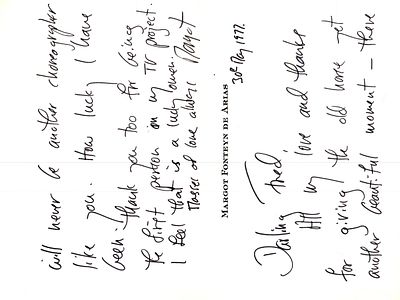 MARGOT FONTEYN DE ARIAS
30th May, 1977.
Darling Fred,
All my love and thanks
for giving the old horse yet
another beautiful moment — there
will never be another choreographer
like you. How luck I have
been. Thank you too for being
the first person on my TV project.
I feel that is a lucky omen.
Masses of love always Margot